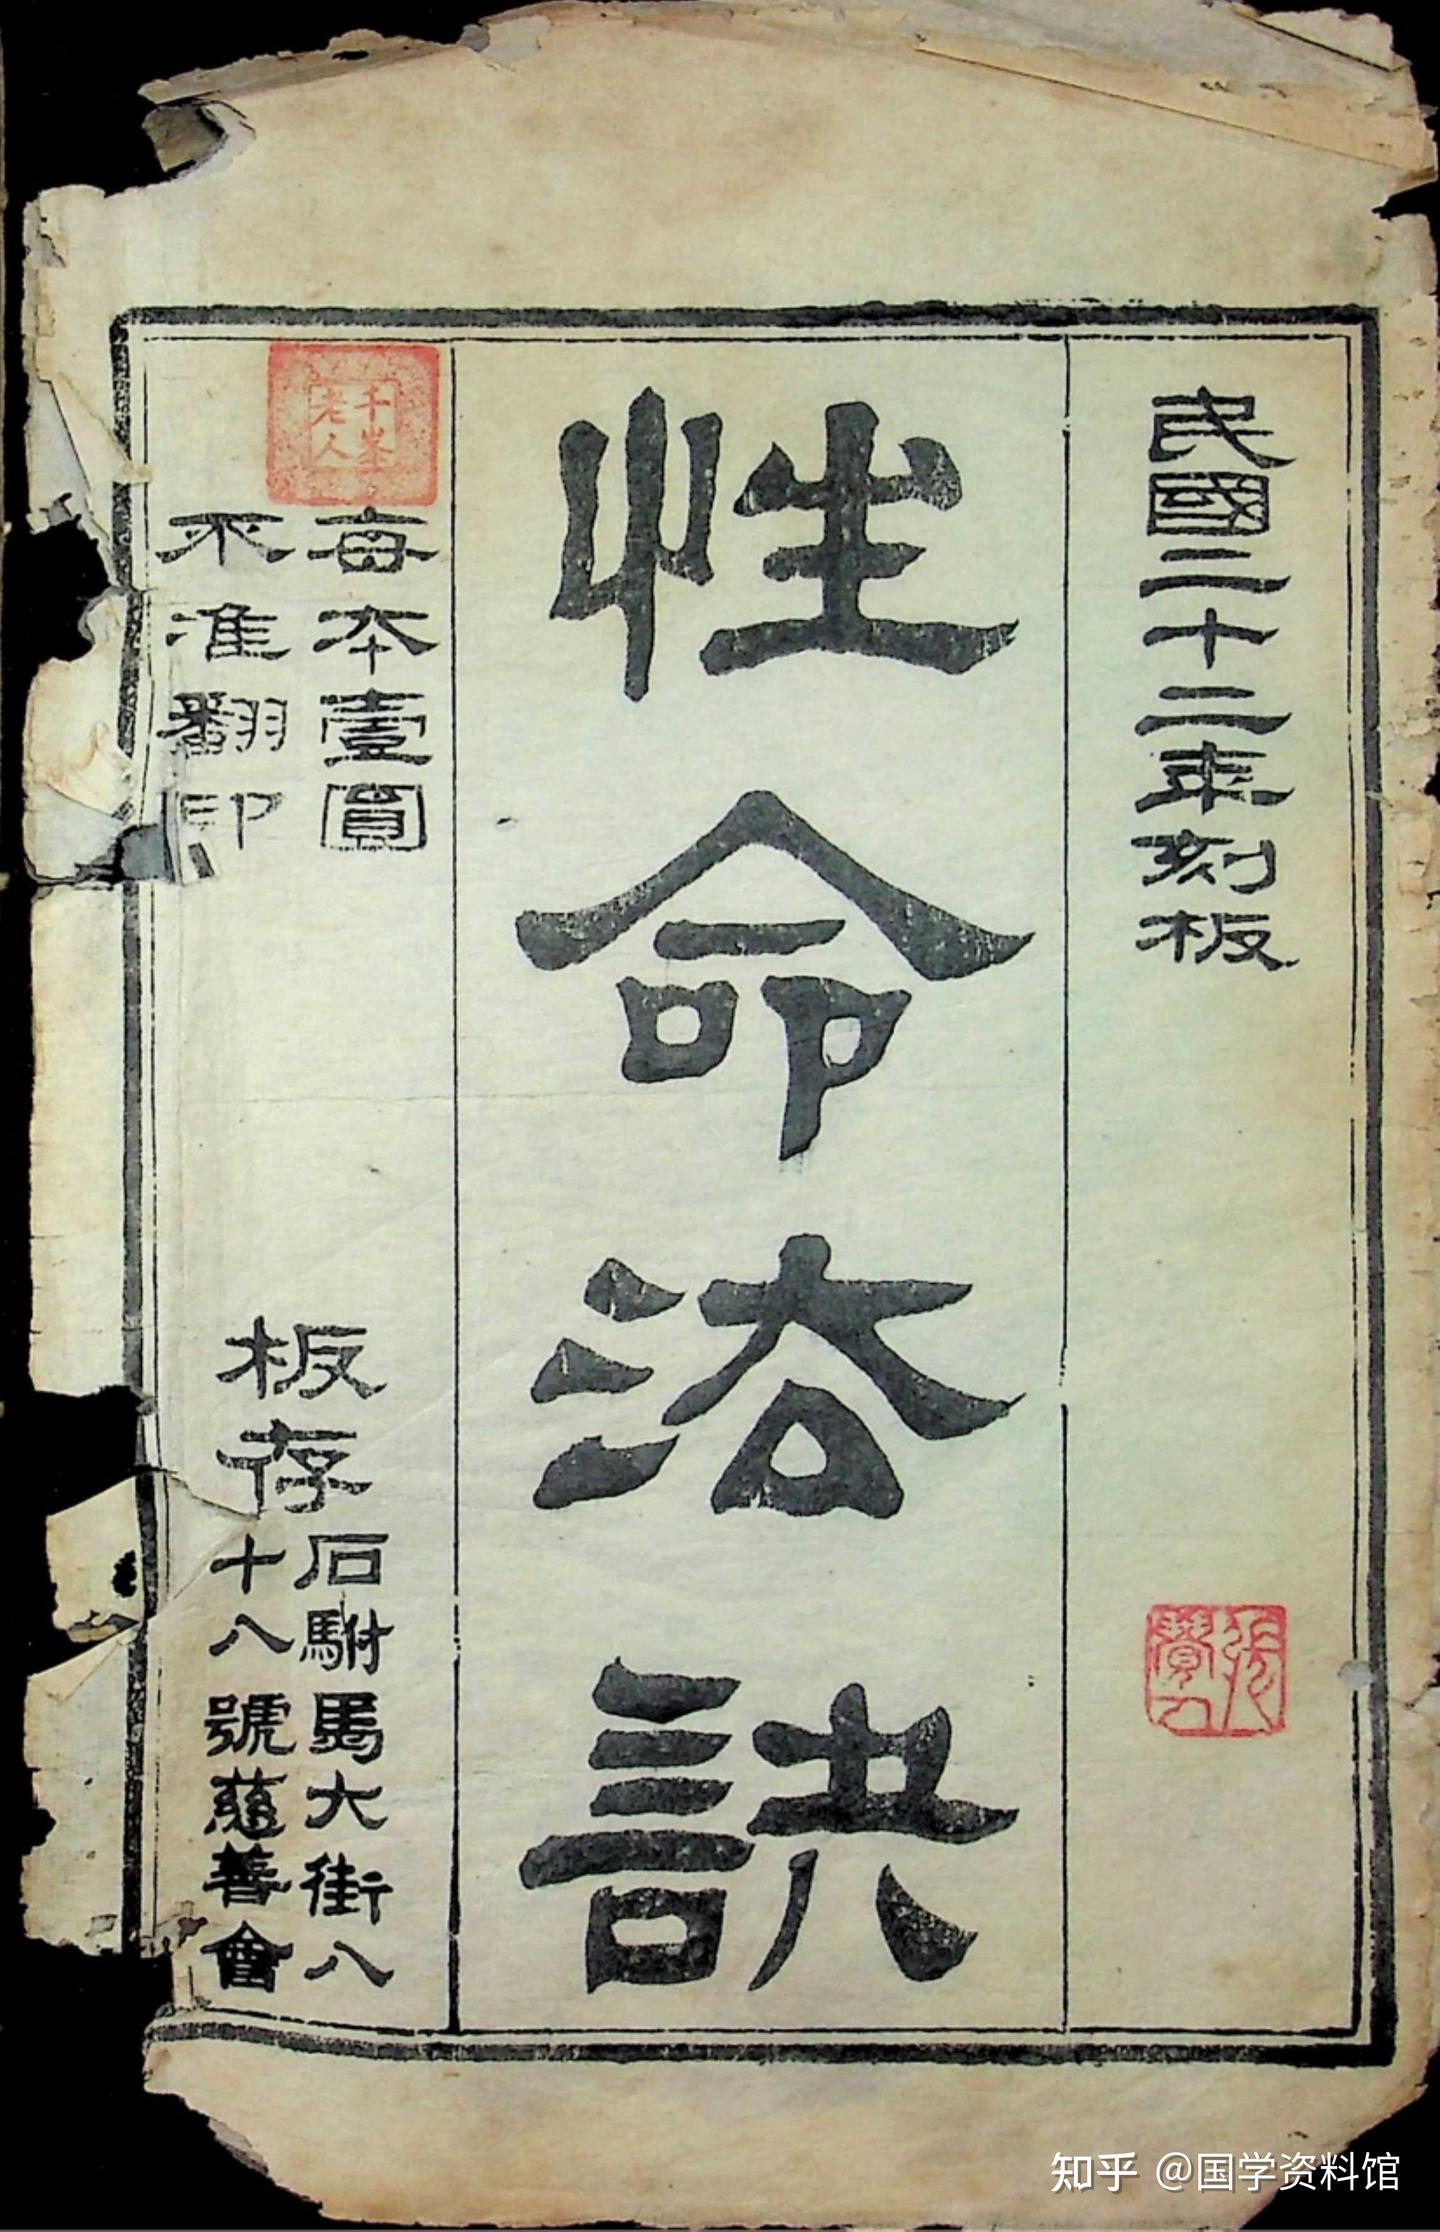 民國二十二年刻板
性命法訣
千峯
老人
每本壹圓
不准翻印
板存
石駙馬大街八
十八號慈善會
知乎 @国学资料馆